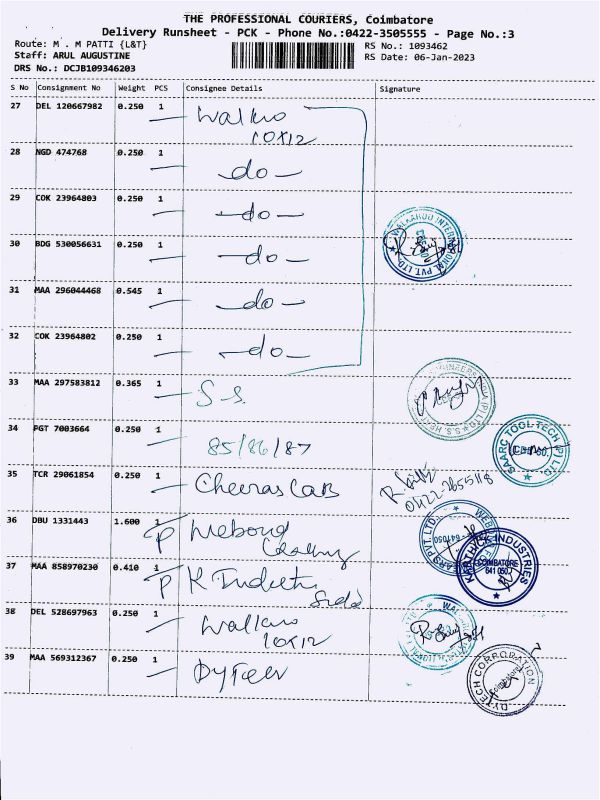 THE PROFESSIONAL COURIERS, Coimbatore
Delivery Runsheet - PCK - Phone No.:0422-3505555 - Page No.:3
Route: M . M PATTI {L&T}
RS No.: 1093462
Staff: ARUL AUGUSTINE
RS Date: 06-Jan-2023
DRS No.: DCJB109346203
S No Consignment No Weight PCS Consignee Details Signature
27 DEL 120667982 0.250 1
10X12
28 NGD 474768 0.250 1 -do-
29 COK 23964803 0.250 1 -do-
30 BDG 530056631 0.250 1 -do-
31 MAA 296044468 0.545 1 -do-
32 COK 23964802 0.250 1 -do-
33 MAA 297583812 0.365 1 S.S.
34 PGT 7003664 0.250 1 85/86/87
SAARC TOOL TECH (P) LTD
35 TCR 29061854 0.250 1 Cheeras Cab
36 DBU 1331443 1.600 1 P
641050
37 MAA 858970230 0.410 1 P K.
KARTHYCK INDUSTRIES
COIMBATORE
641 050.
38 DEL 528697963 0.250 1
10X12
39 MAA 569312367 0.250 1
DYTECH CORPORATION
Coimbatore